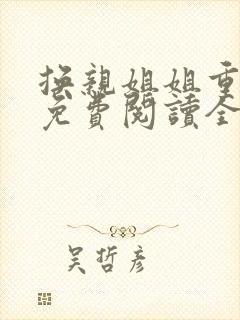 撫親姐姐重
免費閱讀全
吴哲彦